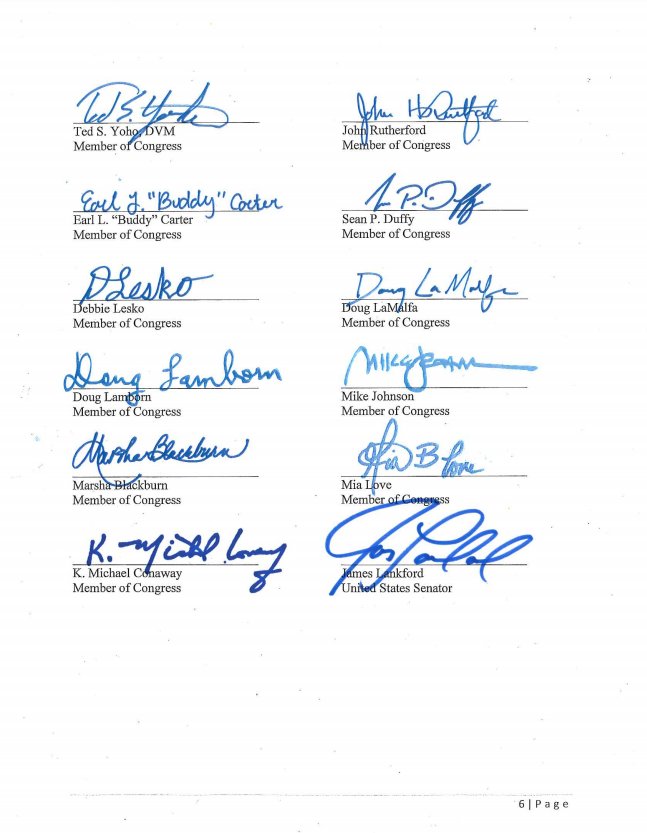 Ted S. Yoho
Ted S. Yoho, DVM
Member of Congress
John H Rutherford
John Rutherford
Member of Congress
Earl L. "Buddy" Carter
Earl L. “Buddy” Carter
Member of Congress
P. Duffy
Sean P. Duffy
Member of Congress
D Lesko
Debbie Lesko
Member of Congress
Doug LaMalfa
Doug LaMalfa
Member of Congress
Doug Lamborn
Doug Lamborn
Member of Congress
Mike
Mike Johnson
Member of Congress
Marsha Blackburn
Marsha Blackburn
Member of Congress
Mia B Love
Mia Love
Member of Congress
K. Michael Conaway
K. Michael Conaway
Member of Congress
James Lankford
United States Senator
6 | Page